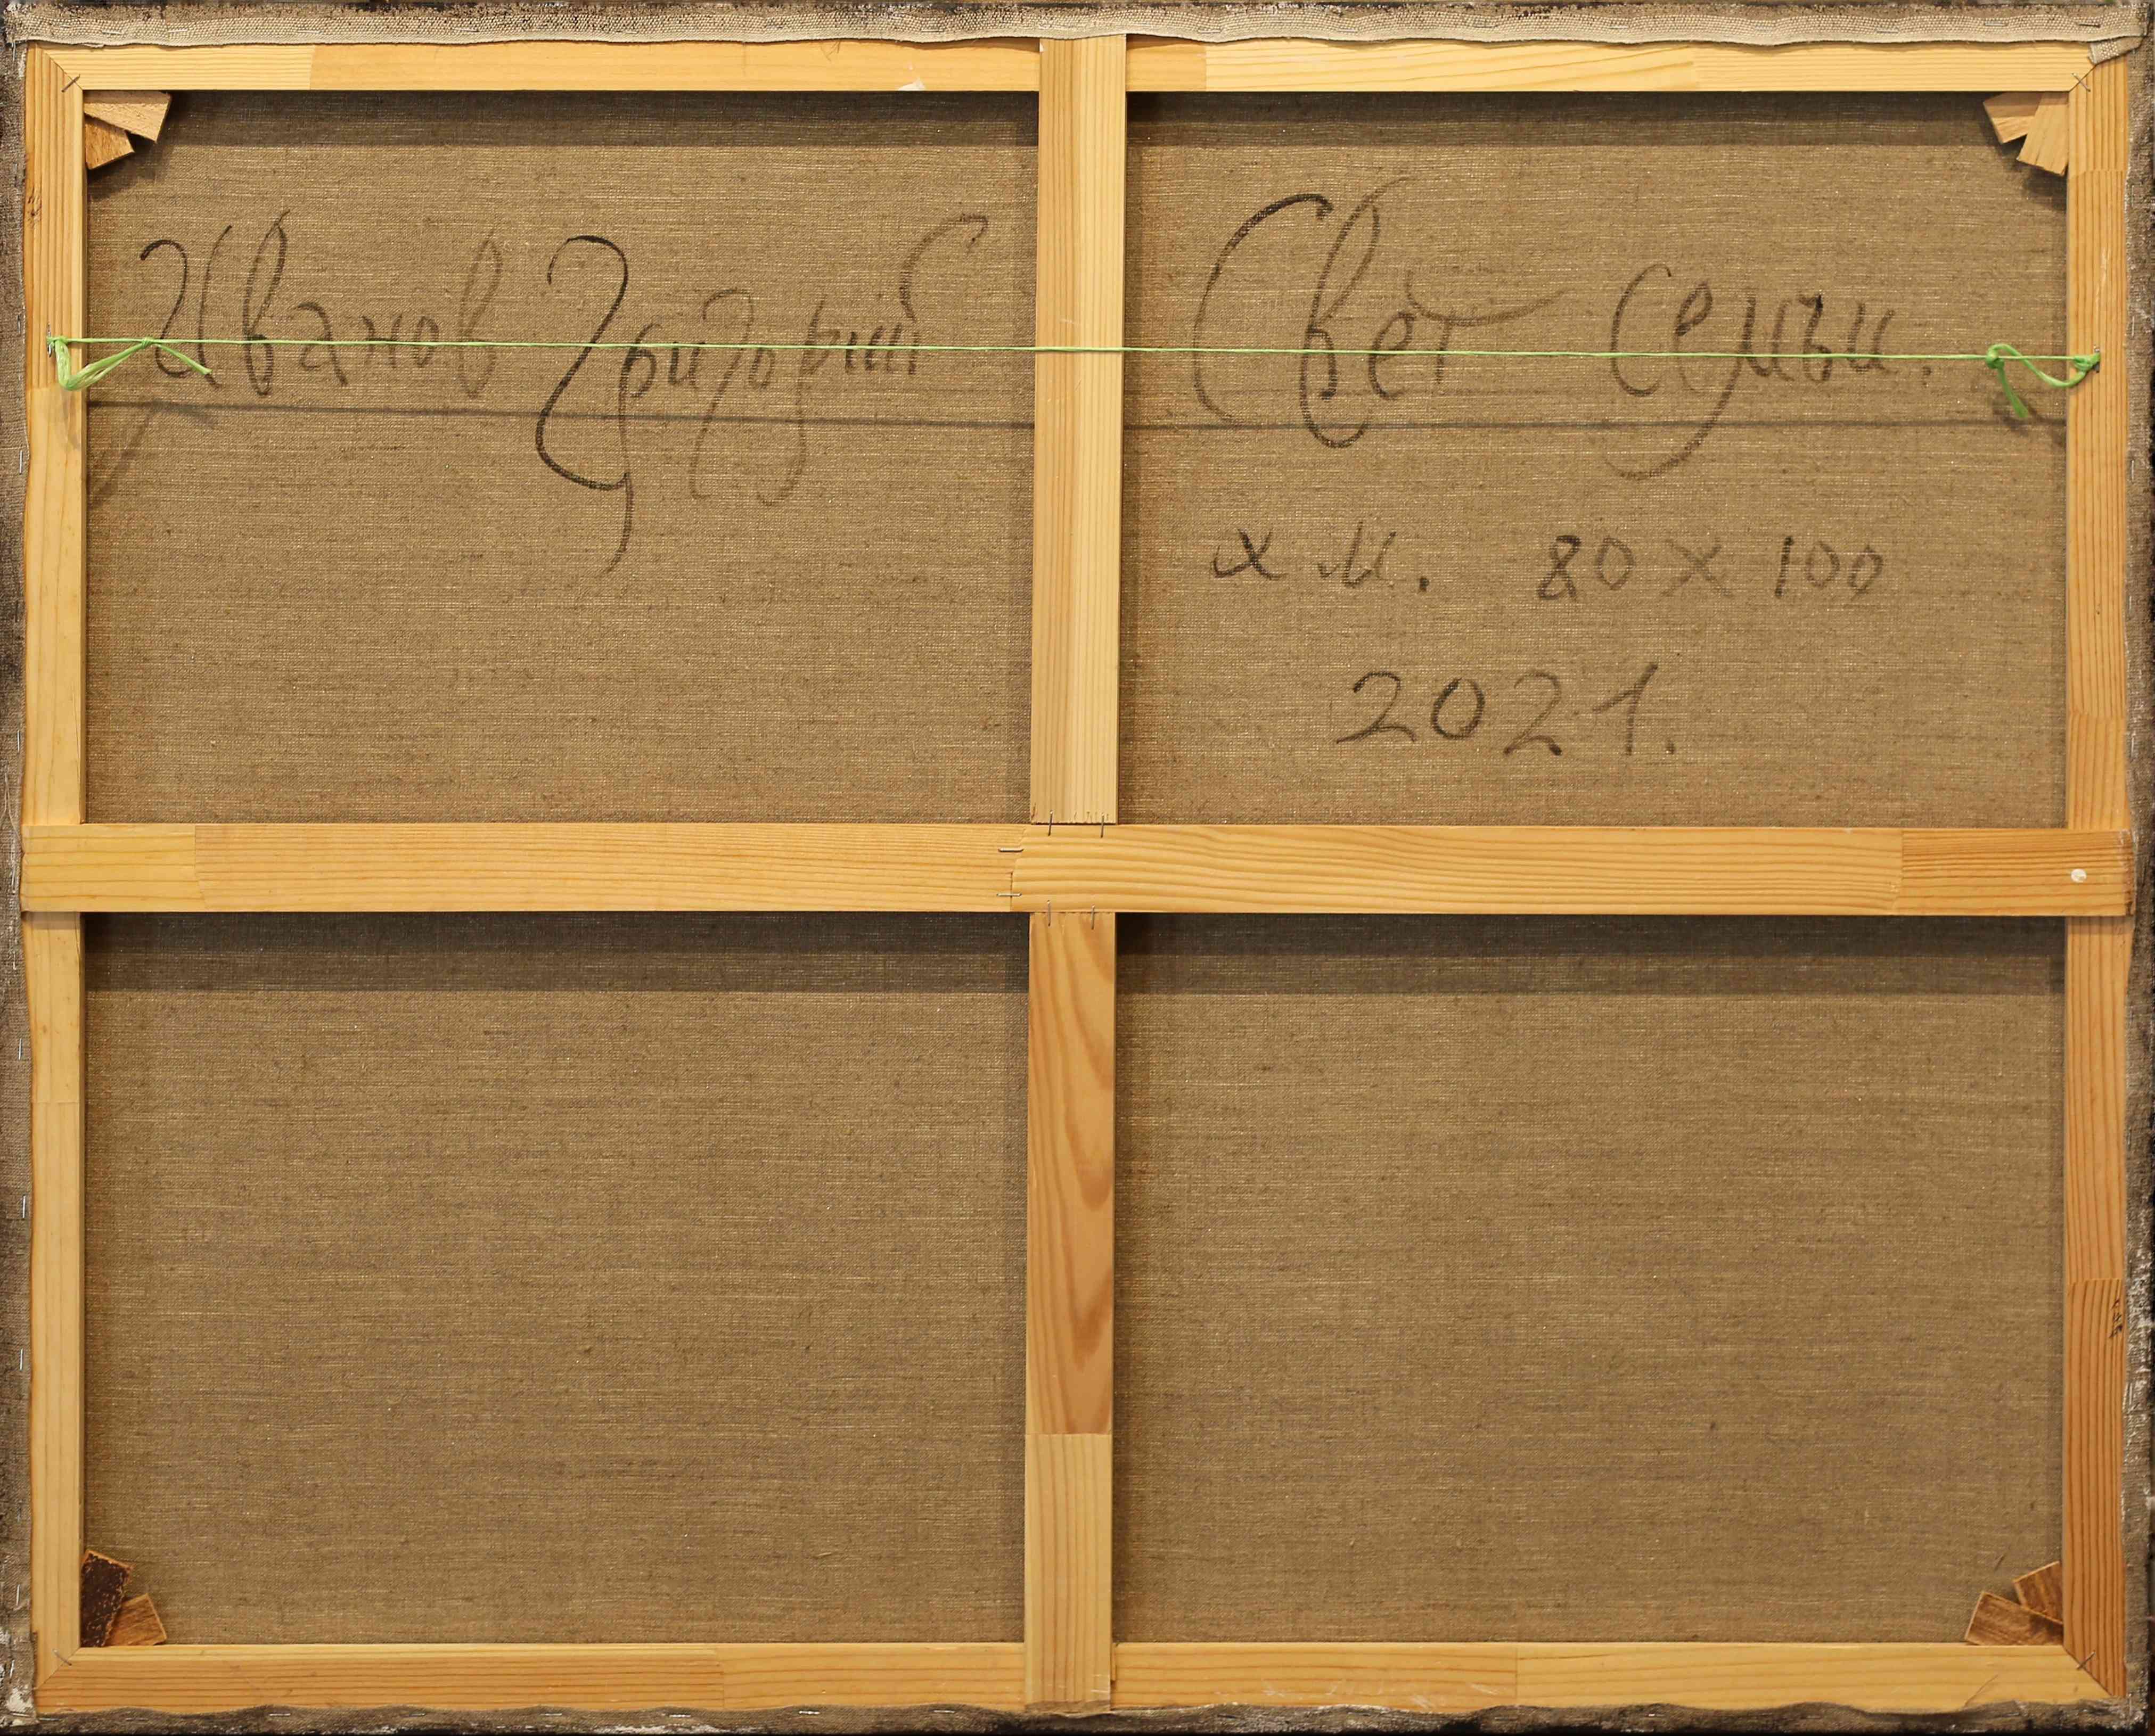 Иванов Григорий
Свет семьи.
х.м. 80 х 100
2021.